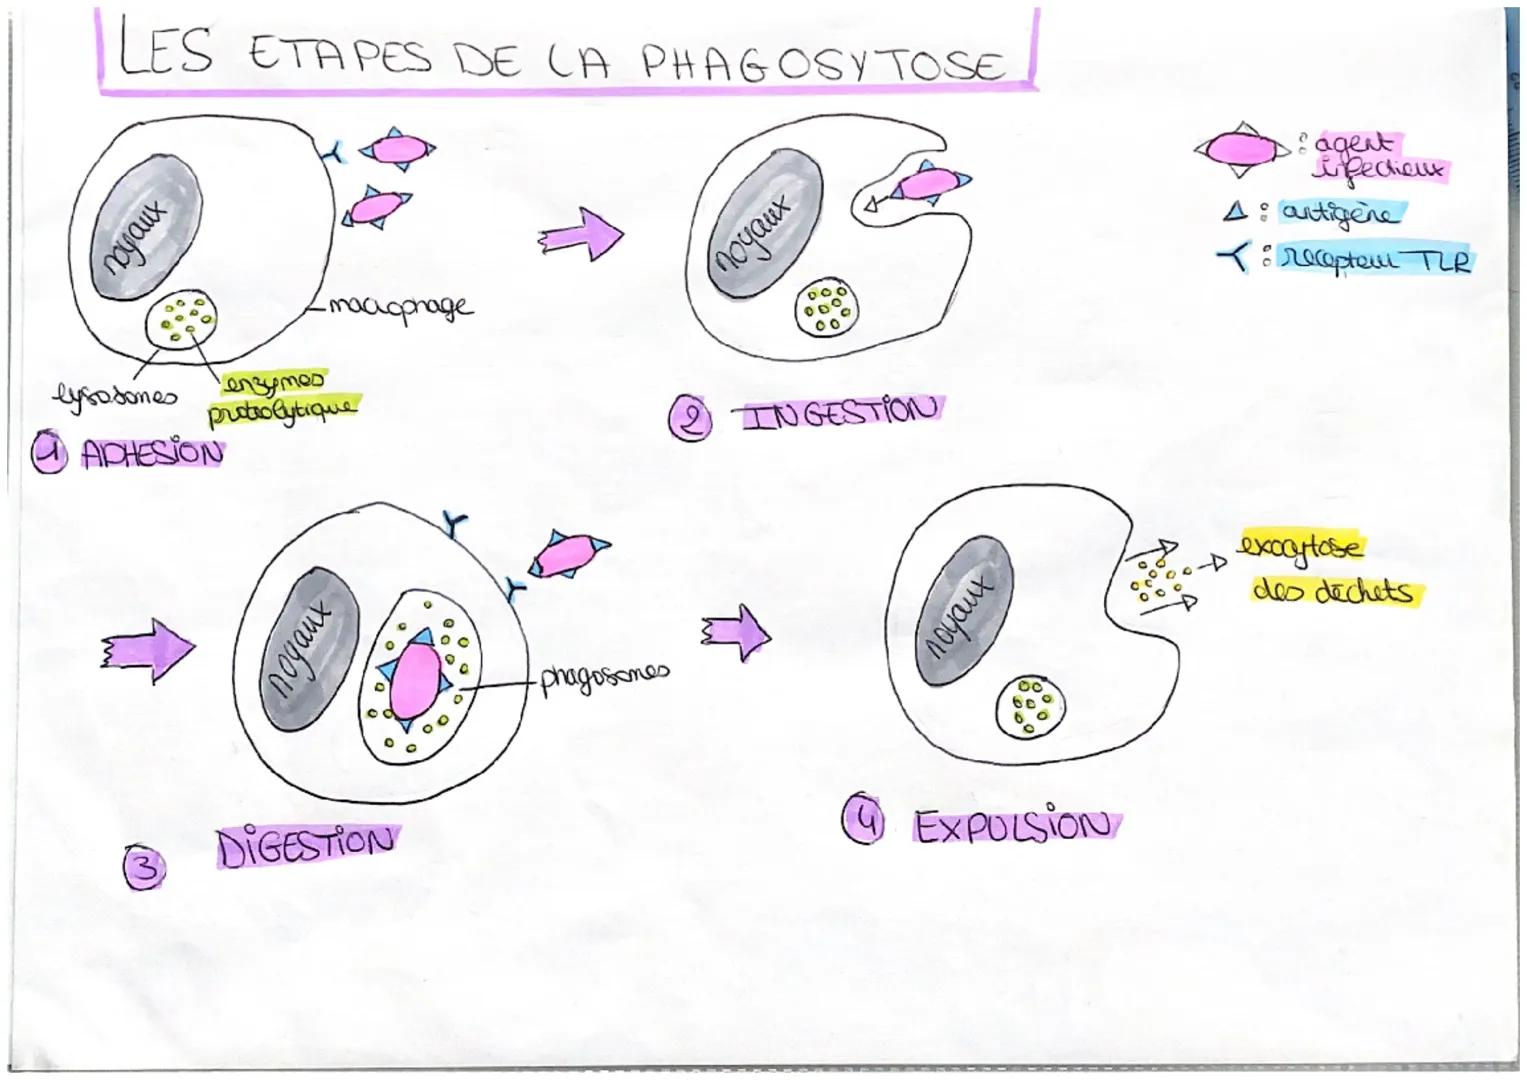 LES ETAPES DE LA PHAGOSYTOSE
: agent
infectieux
: antigène
: recepteur TLR
noyaux
macrophage
lysosomes
enzymes
protéolytique
1 ADHESION
noyaux
2 INGESTION
noyaux
phagosomes
3 DIGESTION
noyaux
exocytose
des déchets
4 EXPULSION